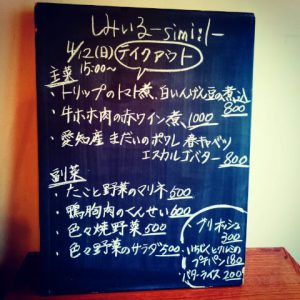 しみいる-simi:l-
4/12(日) テイクアウト
15:00〜
主菜
・トリップのトマト煮、白いんげん豆の煮込 800
・牛ホホ肉の赤ワイン煮、1000
・愛知産 まだいのポワレ 春キャベツ
エスカルゴバター 800
副菜
・たこと野菜のマリネ 500
・鴨胸肉のくんせい 600
・色々焼野菜 500
・色々野菜のサラダ 500
ブリオッシュ
300
・いちじくとくるみの
プチパン 180
・バターライス 200